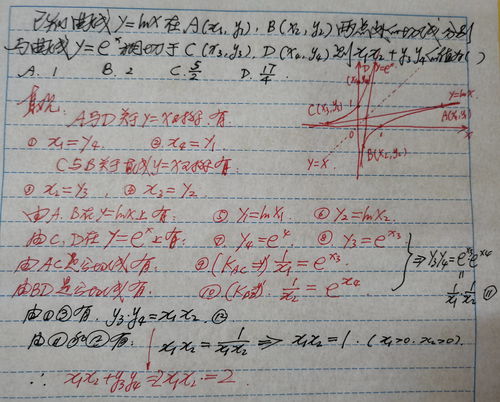 已知曲线 y=lnx 在 A(x₁,y₁), B(x₂,y₂) 两点处的切线分别
与曲线 y=eˣ 相切于 C(x₃,y₃), D(x₄,y₄) 则 x₁x₂+y₃y₄的值为( )
A. 1 B. 2 C. 5/2 D. 17/4
A与D关于y=x对称有.
① x₁=y₄. ② x₄=y₁
C与B关于直线y=x对称有.
③ x₂=y₃ ④ x₃=y₂
由A.B在y=lnx上有: ⑤ y₁=lnx₁ ⑥ y₂=lnx₂.
由C,D在y=eˣ上有: ⑦ y₄=eˣ⁴ ⑧ y₃=eˣ³
由AC是公切线有: ⑨ (K_AC=) 1/x₁=eˣ³
由BD是公切线有: ⑩ (K_BD=) 1/x₂=eˣ⁴
⇒ y₃y₄=eˣ³eˣ⁴
= 1/x₁·1/x₂ ⑪
由①③有. y₃·y₄=x₁x₂ ⑫
由⑪和⑫有: x₁x₂=1/(x₁x₂) ⇒ x₁x₂=1. (x₁>0. x₂>0.)
∴ x₁x₂+y₃y₄=2x₁x₂=2.
y=eˣ
(x₄,y₄)
D
C(x₃,y₃)
y=lnx
A(x₁,y₁)
0
x
B(x₂,y₂)
y=x